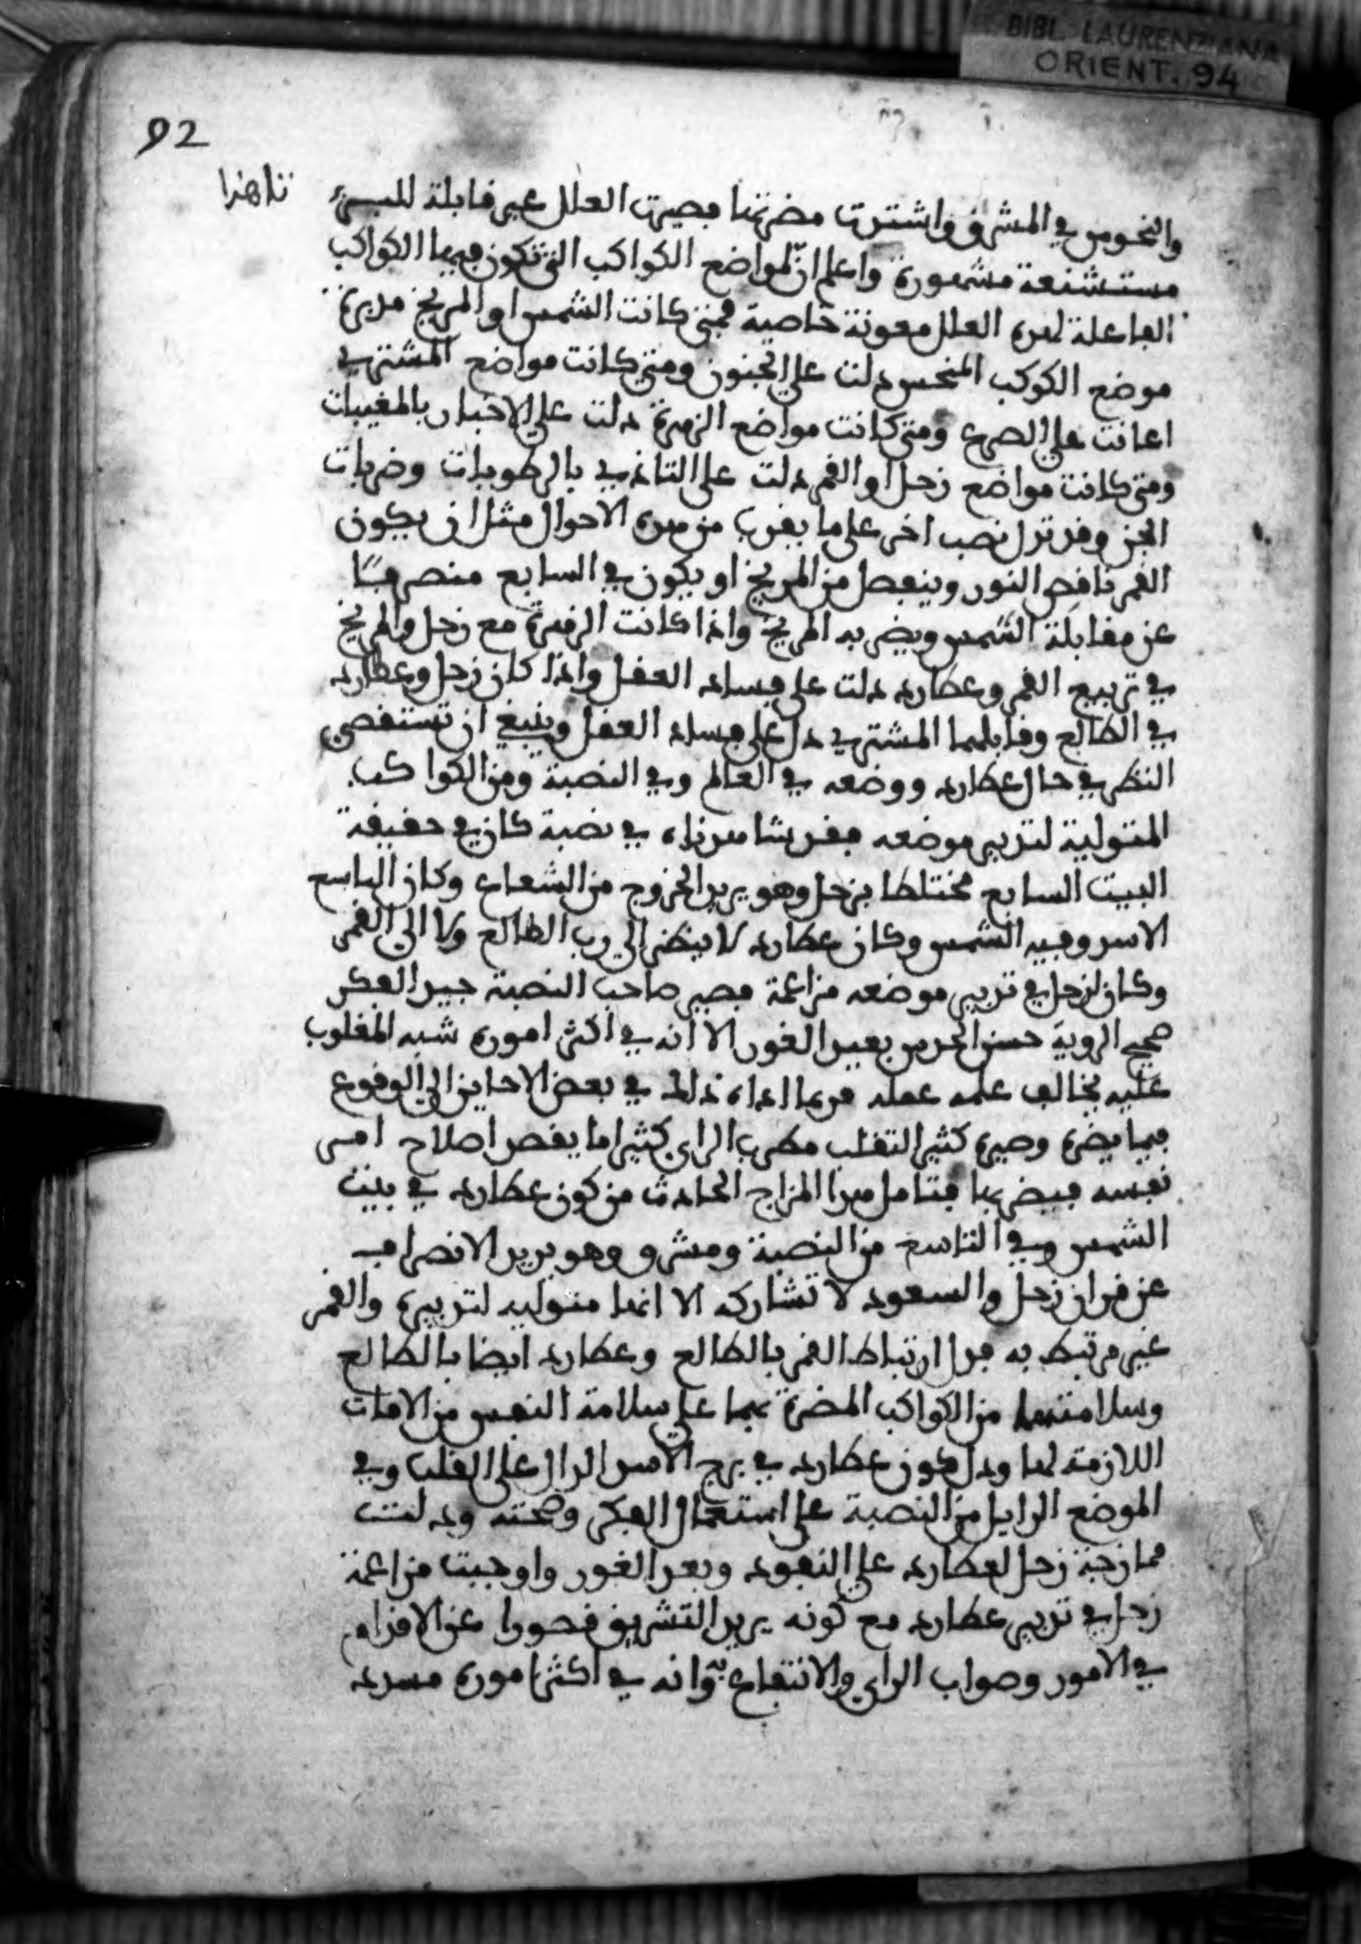 BIBL. LAURENZIANA
ORIENT. 94
92
والنحوس في المشرق واشتدت مضرتها فصيرت العلل غير قابلة للبرء
مستشنعة مشهورة واعلم ان لمواضع الكواكب التي تكون فيها الكواكب
الفاعلة لهذه العلل معونة خاصية فمتى كانت الشمس او المريخ مدبرة
موضع الكوكب المنحس دلت على الجنون ومتى كانت مواضع المشتري
اعانت على الصرع ومتى كانت مواضع الزهرة دلت على الاخبار بالمغيبات
ومتى كانت مواضع زحل او القمر دلت على التاذي بالرطوبات وضربات
الجن وقد تدل نصب اخر على ما يقرب من هذه الاحوال مثل ان يكون
القمر ناقص النور وينفصل من المريخ او يكون في السابع منصرفا
عن مقابلة الشمس ويضر به المريخ واذا كانت الزهرة مع زحل والمريخ
في تربيع القمر وعطارد دلت على فساد العقل واذا كان زحل وعطارد
في الطالع وقابلهما المشتري دل على فساد العقل وينبغي ان تستقصي
النظر في حال عطارد ووضعه في العالم وفي النصبة ومن الكواكب
المتولية لتدبير موضعه فقد شاهدناه في نصبة كان في حقيقة
البيت السابع مختلطا بزحل وهو يريد الخروج من الشعاع وكان التاسع
الاسد وفيه الشمس وكان عطارد لا ينظر الى رب الطالع ولا الى القمر
وكان لزحل في تدبير موضعه مزاعمة فصير صاحب النصبة جيد الفكر
صحيح الروية حسن الحدس بعيد الغور الا انه في اكثر اموره شبه المغلوب
عليه يخالف علمه عمله فربما اداه ذلك في بعض الاحايين الى الوقوع
فيما يضره وصيره كثير التقلب مضطرب الراي كثيرا ما يقصد اصلاح امر
نفسه فيضر بها فتامل هذا المزاج الحادث من كون عطارد في بيت
الشمس وفي التاسع من النصبة ومشرق وهو يريد الانصراف
عن قران زحل والسعود لا تشاركه الا انها متولية لتدبيره والقمر
غير مرتبط به فدل ارتباط القمر بالطالع وعطارد ايضا بالطالع
وسلامتهما من الكواكب المضرة بهما على سلامة النفس من الافات
اللازمة لها ودل كون عطارد في برج الاسد الدال على القلب وفي
الموضع الزايل من النصبة على استعمال الفكر وصحته ودلت
ممازجة زحل لعطارد على النفوذ وبعد الغور واوجبت مزاعمة
زحل في تدبير عطارد مع كونه يريد التشريق قصورا عن الاقدام
في الامور وصواب الراي والانتفاع به وانه في اكثر اموره